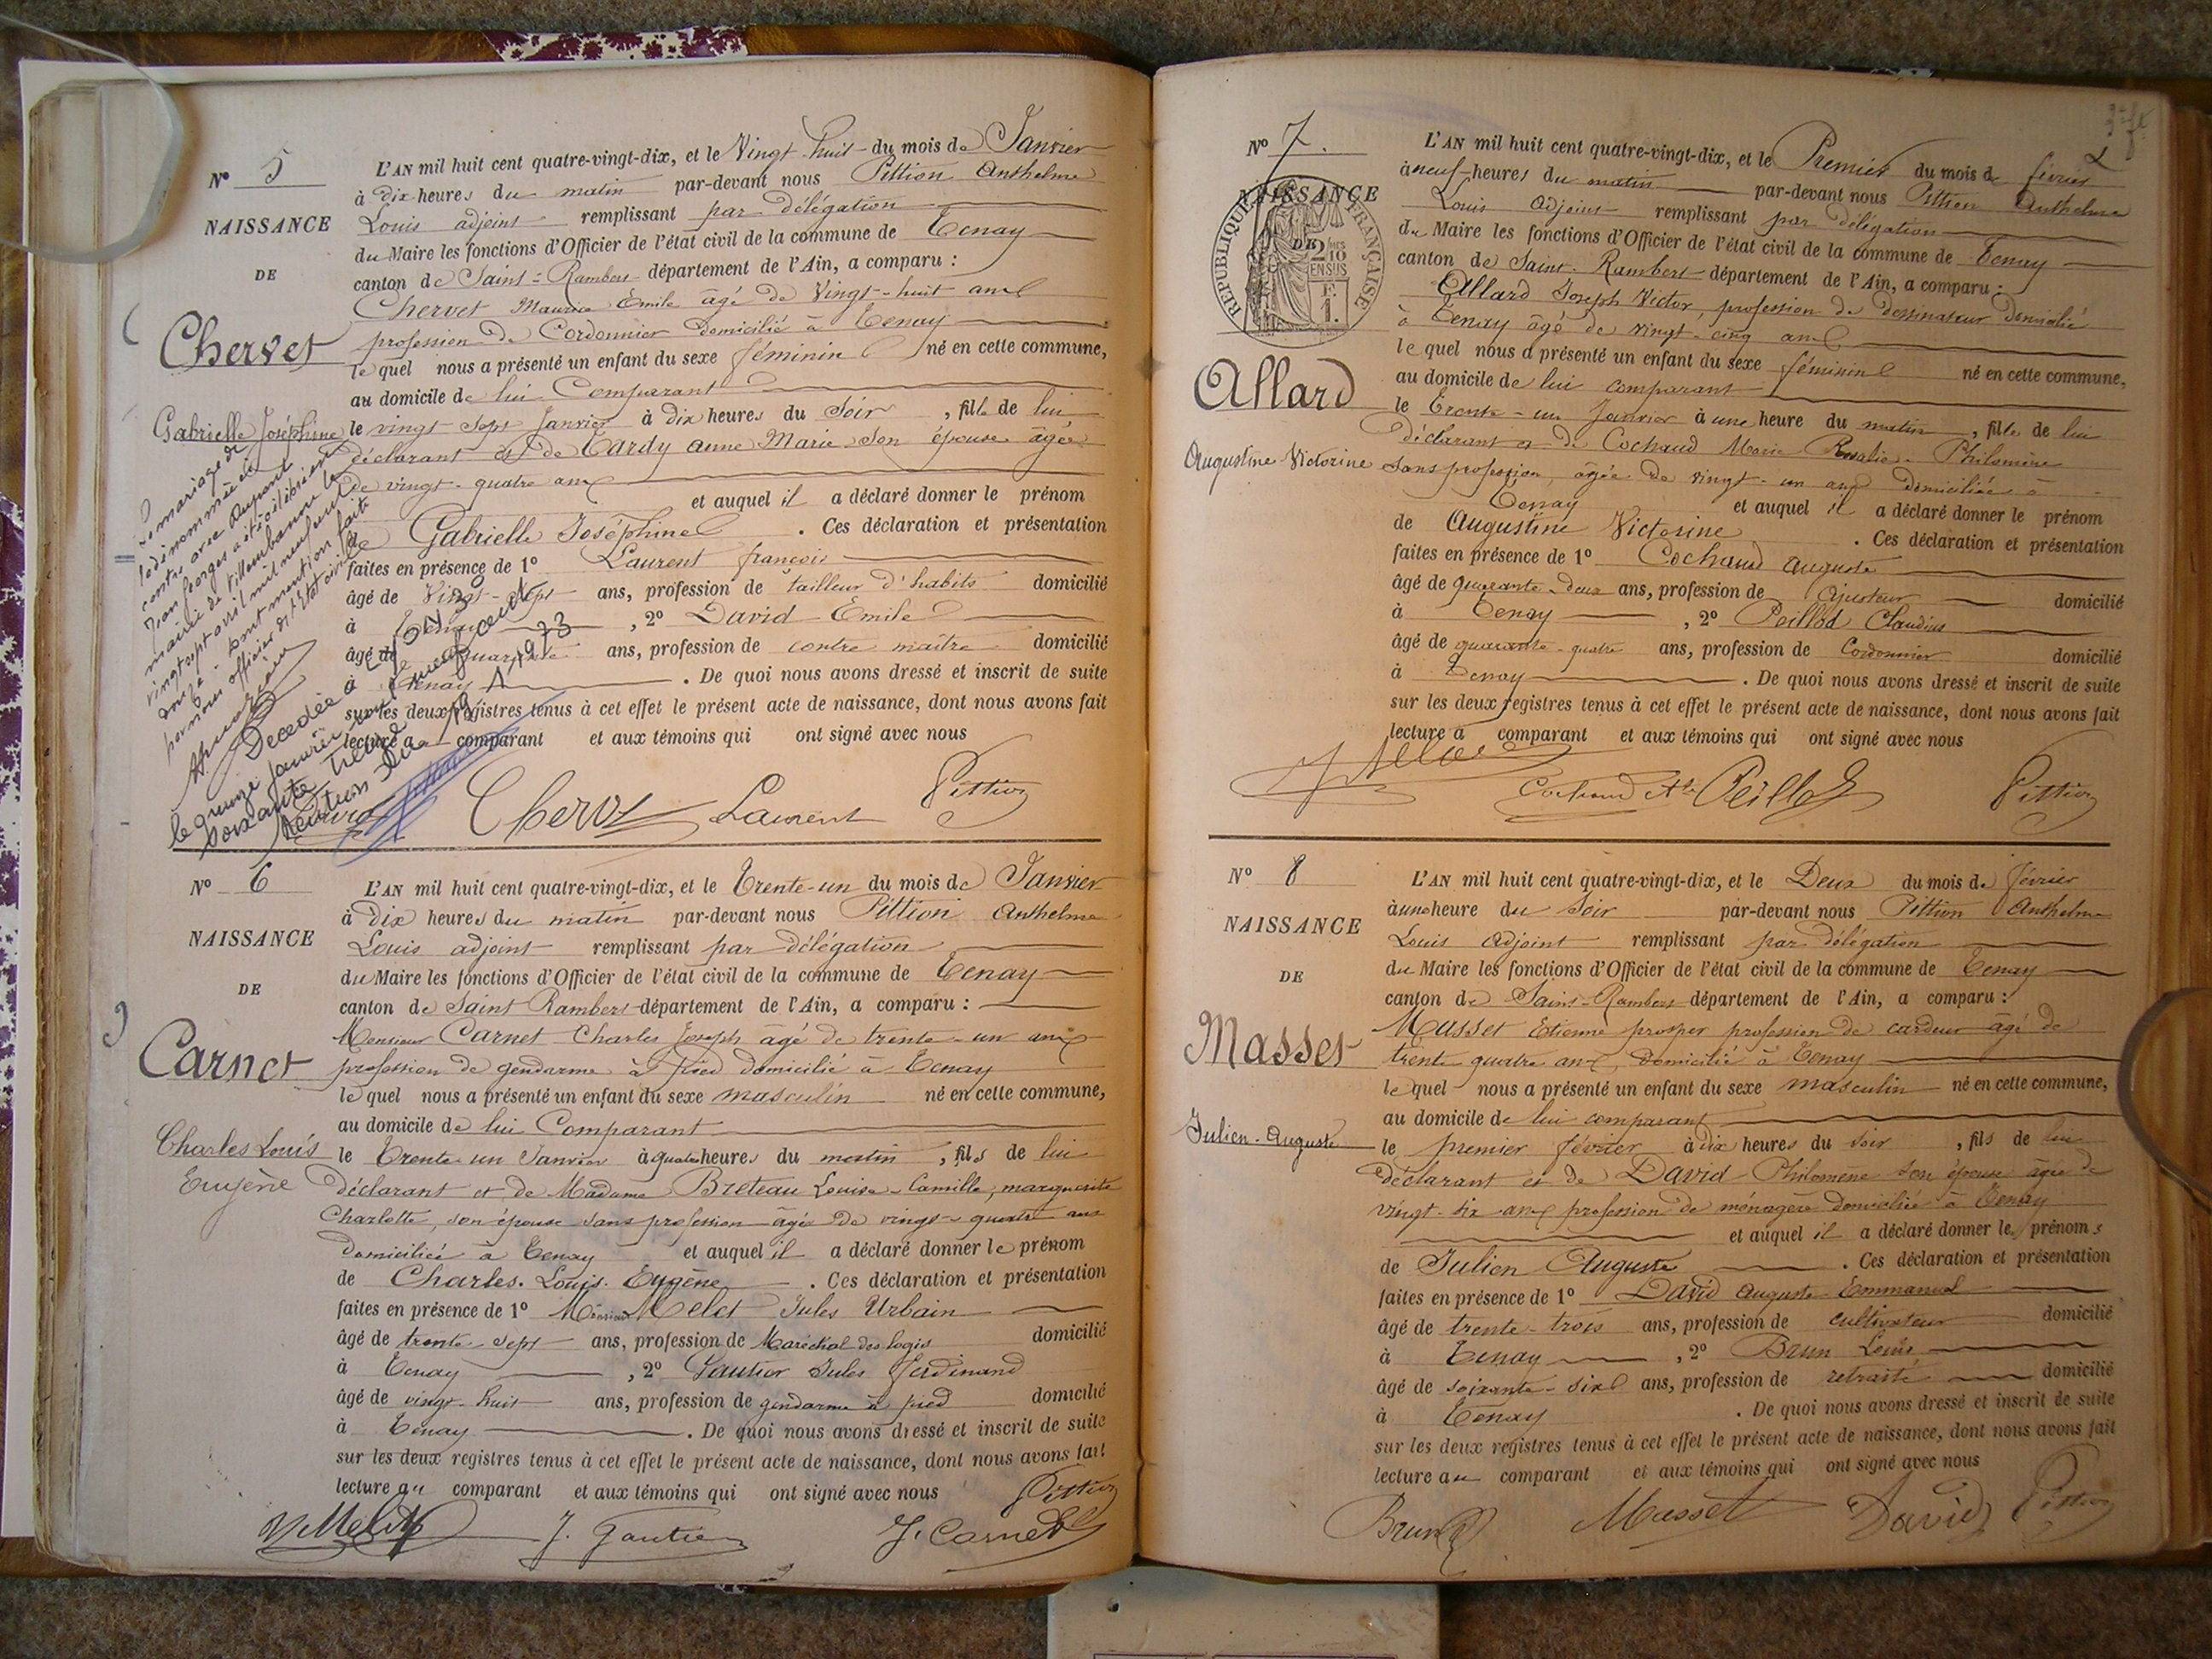 N° 5
NAISSANCE
DE
Chervet
Gabrielle Joséphine
L'AN mil huit cent quatre-vingt-dix, et le Vingt-huit du mois de Janvier
à dix heures du matin par-devant nous Pittion Anthelme
Louis adjoint remplissant par délégation
du Maire les fonctions d'Officier de l'état civil de la commune de Tenay
canton de Saint-Rambert département de l'Ain, a comparu :
Chervet Maurice Émile âgé de Vingt-huit ans
profession de Cordonnier domicilié à Tenay
le quel nous a présenté un enfant du sexe féminin né en cette commune,
au domicile de lui Comparant
le vingt sept Janvier à dix heures du Soir, fille de lui
déclarant et de Tardy Anne Marie son épouse âgée
de vingt-quatre ans
et auquel il a déclaré donner le prénom
de Gabrielle Joséphine. Ces déclaration et présentation
faites en présence de 1° Laurent françois
âgé de Vingt-sept ans, profession de tailleur d'habits domicilié
à Tenay, 2° David Émile
âgé de Quarante ans, profession de contre maître domicilié
à Tenay. De quoi nous avons dressé et inscrit de suite
sur les deux registres tenus à cet effet le présent acte de naissance, dont nous avons fait
lecture au comparant et aux témoins qui ont signé avec nous
Le mariage de
la dénommée ci
contre avec Dupont
Jean Georges a été célébré en la
mairie de Villeurbanne le
vingt sept avril mil neuf cent
douze. Dont mention faite
par nous officier de l'état civil
Décédée à Lyon 3
le quinze janvier mil neuf cent
soixante treize
Mention du 19.1.1973
Chervet Laurent Pittion
N° 6
NAISSANCE
DE
Carnet
Charles Louis
Eugène
L'AN mil huit cent quatre-vingt-dix, et le Trente-un du mois de Janvier
à Dix heures du matin par-devant nous Pittion Anthelme
Louis adjoint remplissant par délégation
du Maire les fonctions d'Officier de l'état civil de la commune de Tenay
canton de Saint Rambert département de l'Ain, a comparu :
Monsieur Carnet Charles Joseph âgé de trente-un ans
profession de gendarme à pied domicilié à Tenay
le quel nous a présenté un enfant du sexe masculin né en cette commune,
au domicile de lui Comparant
le Trente un Janvier à quatre heures du matin, fils de lui
déclarant et de Madame Breteau Louise-Camille, marguerite
Charlotte, son épouse sans profession âgée de vingt-quatre ans
domiciliée à Tenay et auquel il a déclaré donner le prénom
de Charles. Louis. Eugène. Ces déclaration et présentation
faites en présence de 1° Monsieur Melet Jules Urbain
âgé de trente-sept ans, profession de Maréchal des logis domicilié
à Tenay, 2° Gautier Jules Ferdinand
âgé de vingt-huit ans, profession de gendarme à pied domicilié
à Tenay. De quoi nous avons dressé et inscrit de suite
sur les deux registres tenus à cet effet le présent acte de naissance, dont nous avons fait
lecture au comparant et aux témoins qui ont signé avec nous Pittion
Melet J. Gautier J. Carnet
N° 7.
NAISSANCE
DE
RÉPUBLIQUE FRANÇAISE
2/10 EN SUS
Allard
Augustine Victorine
L'AN mil huit cent quatre-vingt-dix, et le Premier du mois de février
à neuf heures du matin par-devant nous Pittion Anthelme
Louis adjoint remplissant par délégation
du Maire les fonctions d'Officier de l'état civil de la commune de Tenay
canton de Saint-Rambert département de l'Ain, a comparu :
Allard Joseph Victor, profession de dessinateur domicilié
à Tenay âgé de vingt-cinq ans
le quel nous a présenté un enfant du sexe féminin né en cette commune,
au domicile de lui comparant
le Trente-un Janvier à une heure du matin, fille de lui
déclarant et de Cochaud Marie Rosalie-Philomène
sans profession, âgée de vingt-un ans domiciliée à
Tenay et auquel il a déclaré donner le prénom
de Augustine Victorine. Ces déclaration et présentation
faites en présence de 1° Cochaud Auguste
âgé de quarante-deux ans, profession de ajusteur domicilié
à Tenay, 2° Peillod Claudius
âgé de quarante-quatre ans, profession de Cordonnier domicilié
à Tenay. De quoi nous avons dressé et inscrit de suite
sur les deux registres tenus à cet effet le présent acte de naissance, dont nous avons fait
lecture à comparant et aux témoins qui ont signé avec nous
Cochaud Peillod Pittion
N° 8
NAISSANCE
DE
Masset
Julien-Auguste
L'AN mil huit cent quatre-vingt-dix, et le Deux du mois de février
à une heure du Soir par-devant nous Pittion Anthelme
Louis adjoint remplissant par délégation
du Maire les fonctions d'Officier de l'état civil de la commune de Tenay
canton de Saint-Rambert département de l'Ain, a comparu :
Masset Etienne prosper profession de cardeur âgé de
trente quatre ans, domicilié à Tenay
le quel nous a présenté un enfant du sexe masculin né en cette commune,
au domicile de lui comparant
le premier février à dix heures du soir, fils de lui
déclarant et de David Philomène son épouse âgée de
vingt-six ans profession de ménagère domiciliée à Tenay
et auquel il a déclaré donner les prénoms
de Julien Auguste. Ces déclaration et présentation
faites en présence de 1° David Auguste Emmanuel
âgé de trente-trois ans, profession de cultivateur domicilié
à Tenay, 2° Brun Louis
âgé de soixante-six ans, profession de retraité domicilié
à Tenay. De quoi nous avons dressé et inscrit de suite
sur les deux registres tenus à cet effet le présent acte de naissance, dont nous avons fait
lecture au comparant et aux témoins qui ont signé avec nous
Brun Masset David Pittion